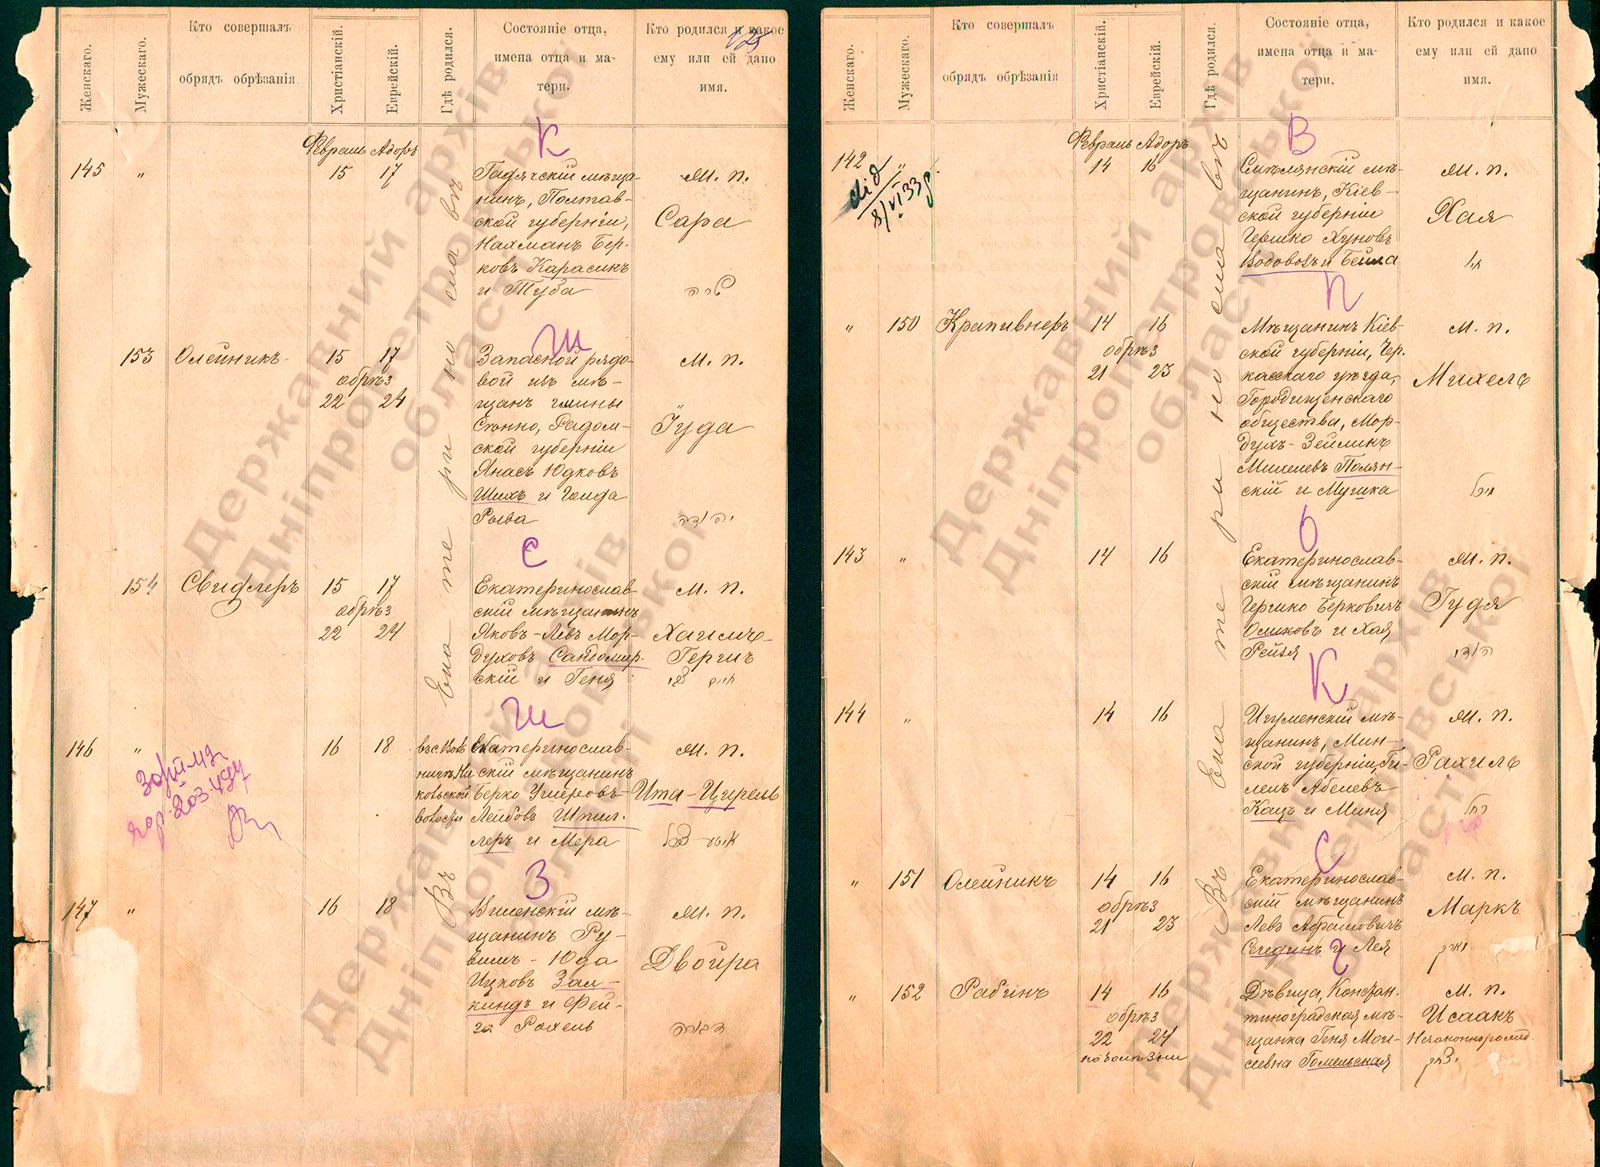 Женскаго.
Мужескаго.
Кто совершалъ
обрядъ обрѣзанія
Христіанскій.
Еврейскій.
Гдѣ родился.
Состояніе отца,
имена отца и ма-
тери.
Кто родился и какое
ему или ей дано
имя.
125
Февраль Адоръ
К
145 „ 15 17
Гадячскій мѣща-
нинъ, Полтав-
ской губерніи,
Нахманъ Бер-
ковъ Карасикъ
и Туба
М. п.
Сара
שרה
Ш
153 Олейникъ 15 17
обрѣз
22 24
Запасной рядо-
вой изъ мѣ-
щанъ гмины
Сѣнно, Радом-
ской губерніи
Янасъ Юдковъ
Шихъ и Голда
Рыва
М. п.
Іуда
יהודה
С
154 Свифлеръ 15 17
обрѣз
22 24
Екатеринослав-
скій мѣщанинъ
Яковъ-Левъ Мор-
духовъ Сандомир-
скій и Геня
М. п.
Хаимъ-
Гершъ
חיים צבי
Ш
146 „ 16 18
Екатеринослав-
скій мѣщанинъ
Берко Ушеровъ-
Лейбовъ Шпил-
леръ и Мера
М. п.
Ита-Цирель
В
147 „ 16 18
З
мѣ-
щанинъ Ру-
вимъ-Юда
Ицковъ Зал-
киндъ и Фей-
га Рохель
М. п.
Двойра
דבורה
Въ Екатеринославѣ
Женскаго.
Мужескаго.
Кто совершалъ
обрядъ обрѣзанія
Христіанскій.
Еврейскій.
Гдѣ родился.
Состояніе отца,
имена отца и ма-
тери.
Кто родился и какое
ему или ей дано
имя.
Февраль Адоръ
В
142 „ 14 16
8/VI 33
Смѣлянскій мѣ-
щанинъ, Кіев-
ской губерніи
Гершко Хуновъ
Водовозъ и Бейла
М. п.
Хая
חיה
П
„ 150 Крапивнеръ 14 16
обрѣз
21 23
Мѣщанинъ Кіев-
ской губерніи, Чер-
касскаго уѣзда,
Городищенскаго
общества, Мор-
духъ-Зейлинъ
Михелевъ Полян-
скій и Мушка
М. п.
Михель
О
143 „ 14 16
Екатеринослав-
скій мѣщанинъ
Гершко Берковичъ
Олиховъ и Хая
Рейзя
М. п.
Гудя
הודי
К
144 „ 14 16
Игуменскій мѣ-
щанинъ, Мин-
ской губерніи, Ги-
лель Абелевъ
Кацъ и Миня
М. п.
Рахиль
רחל
С
„ 151 Олейникъ 14 16
обрѣз
21 23
Екатеринослав-
скій мѣщанинъ
Левъ Абрамовичъ
Сегединъ и Лея
М. п.
Маркъ
מרק
Г
„ 152 Рабинъ 14 16
обрѣз
22 24
по болѣзни
Дѣвица, Констан-
тиноградская мѣ-
щанка Геня Мои-
сеевна Гомельская
М. п.
Исаакъ
Незаконнорожд
יצחק
Въ Екатеринославѣ
Державний архів
Дніпропетровської
області